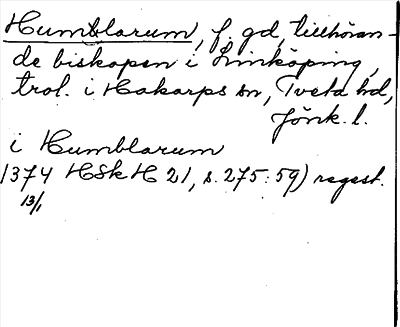 Humblarum, f. gd, tillhöran-
de biskopen i Linköping,
trol. i Hakarps sn, Tveta hd,
Jönk. l.
i Humblarum
1374 HSkH 21, s. 275:59) regest.
13/1